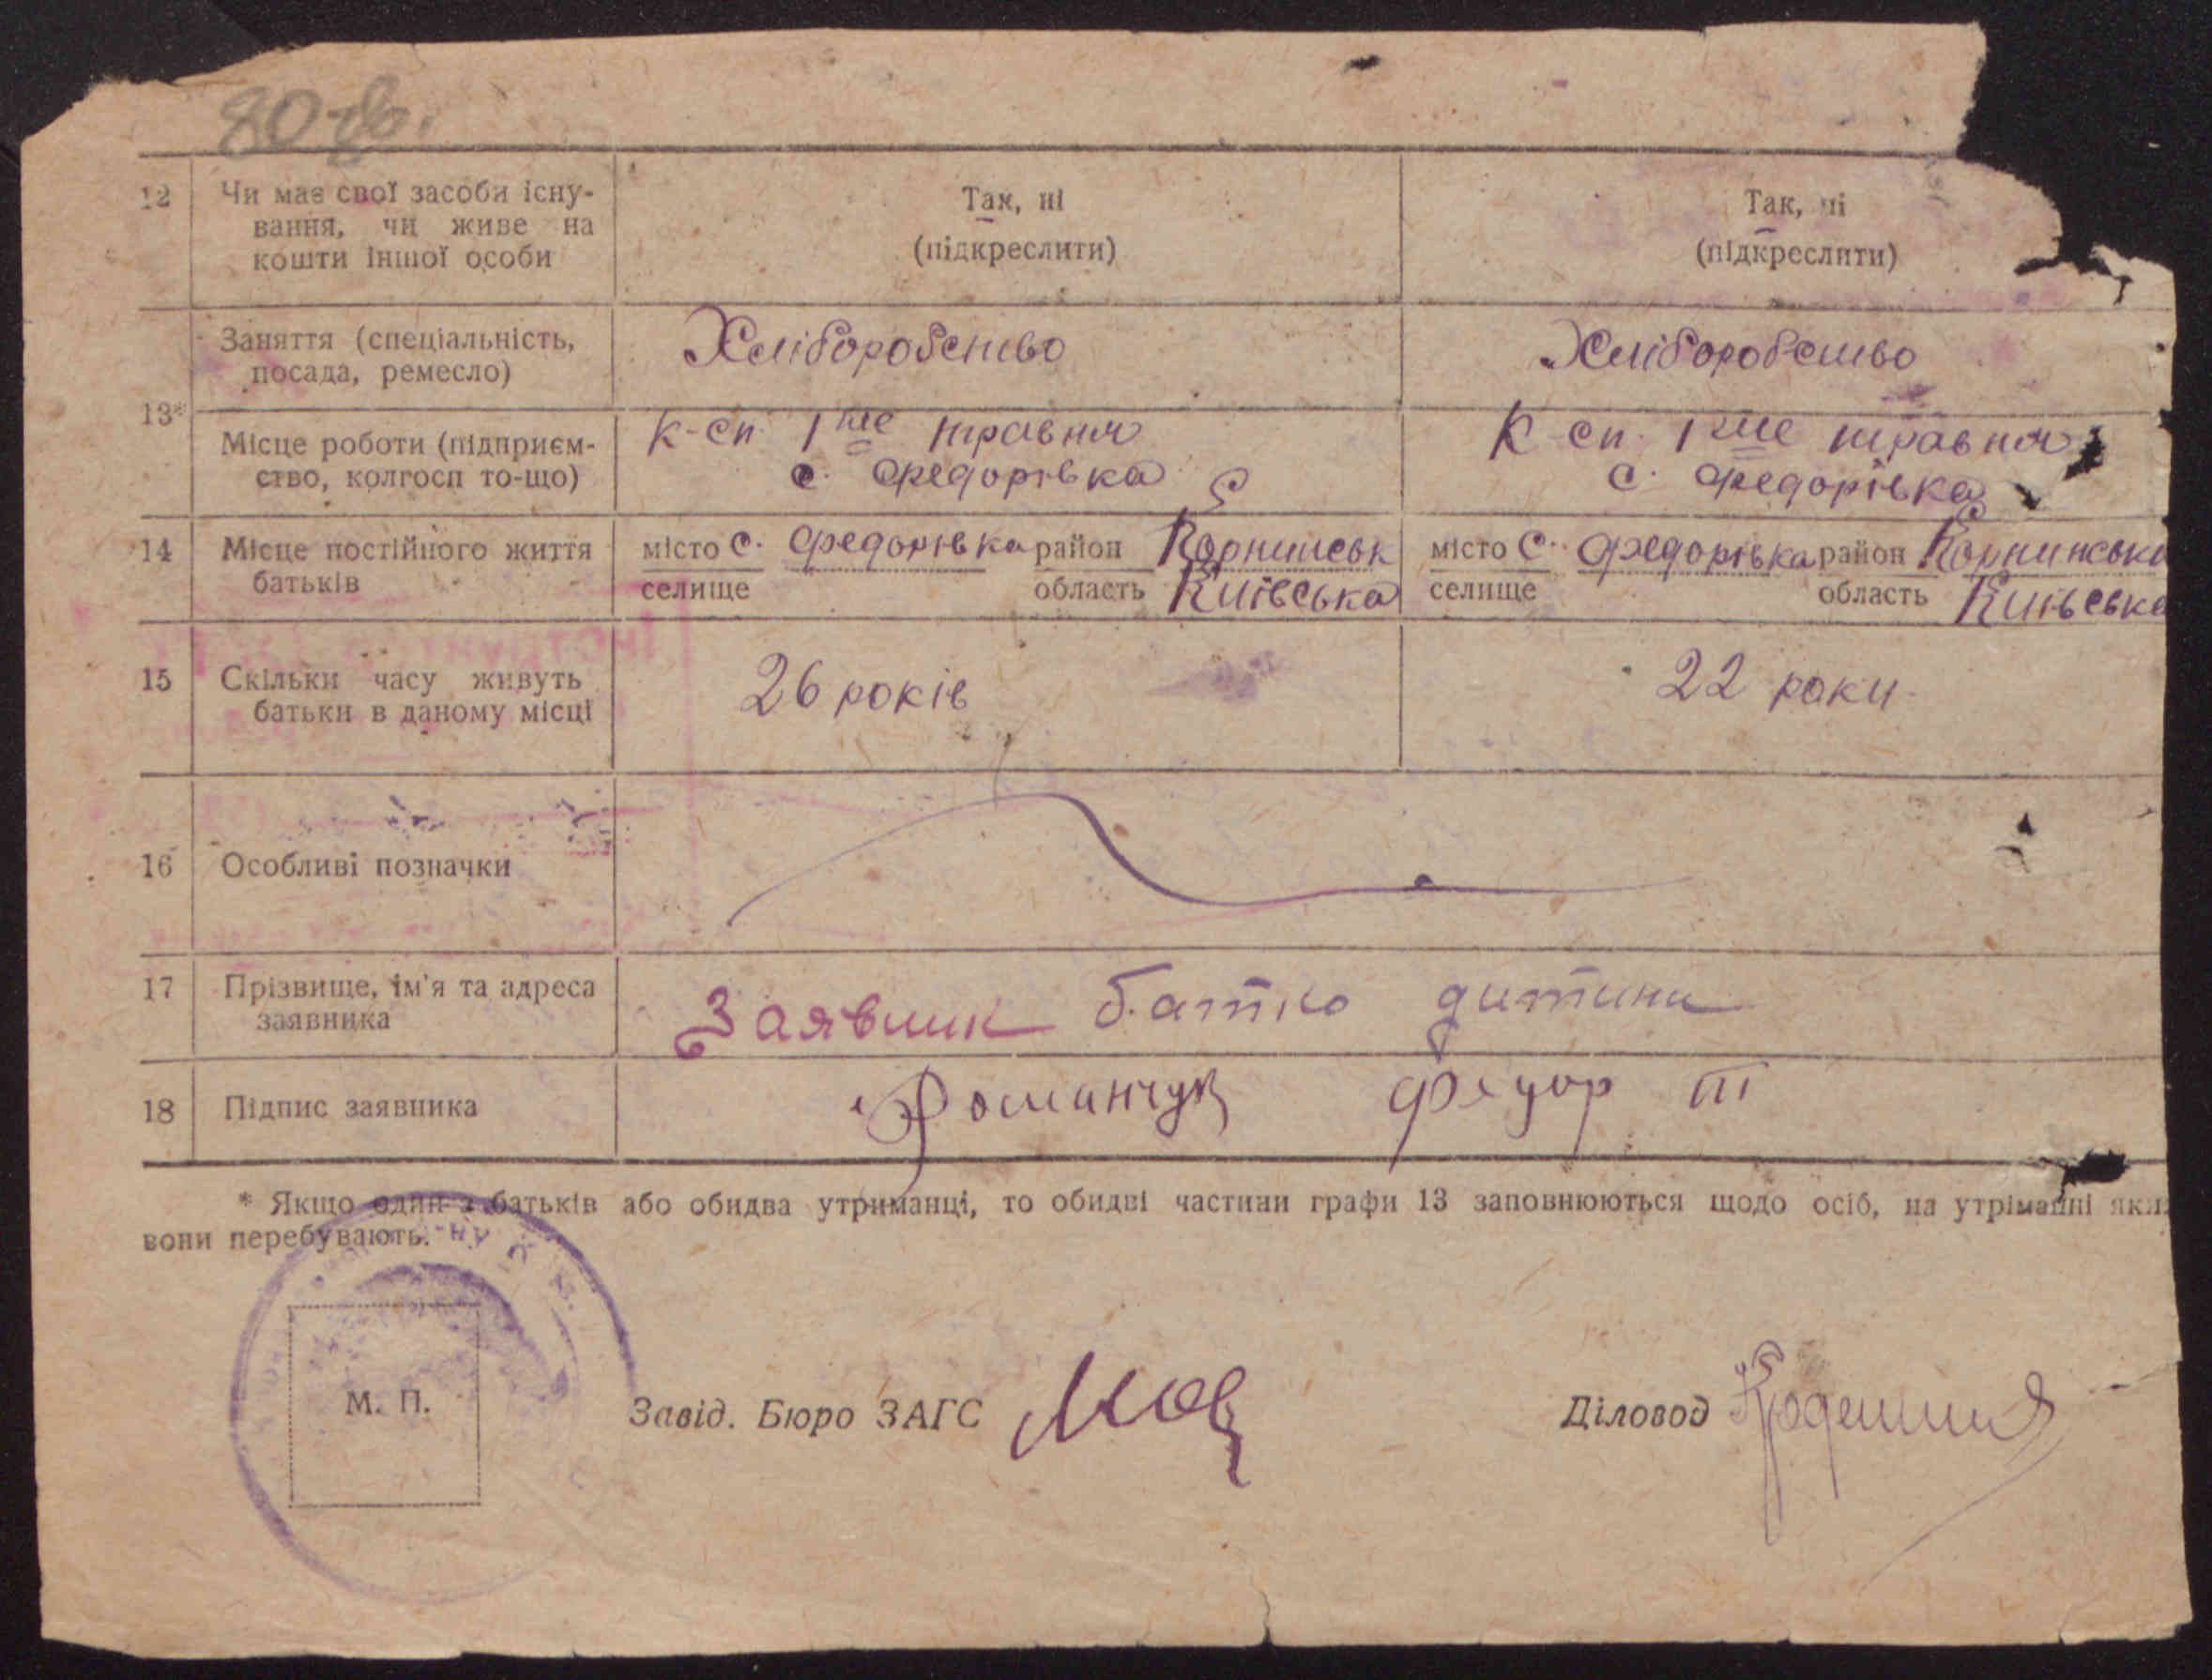 80 зв.
12 Чи має свої засоби існу- Так, ні Так, ні
вання, чи живе на (підкреслити) (підкреслити)
кошти іншої особи
Заняття (спеціальність, Хліборобство Хліборобство
посада, ремесло)
13*
Місце роботи (підприєм- К-сп 1ше травня К-сп. 1ше травня
ство, колгосп то-що) с. Федорівка с. Федорівка
14 Місце постійного життя місто с. Федорівка район Корнинськ місто с. Федорівка район Корнинськи
батьків селище область Київська селище область Київська
15 Скільки часу живуть 26 років 22 роки
батьки в даному місці
16 Особливі позначки
17 Прізвище, ім'я та адреса Заявник батко дитини
заявника
18 Підпис заявника Романчук Федор
* Якщо один з батьків або обидва утриманці, то обидві частини графи 13 заповнюються щодо осіб, на утріманні яких
вони перебувають.
М. П. Завід. Бюро ЗАГС Діловод